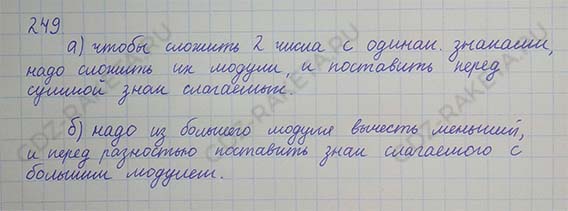 249.
а) чтобы сложить 2 числа с одинак. знаками,
надо сложить их модули, и поставить перед
суммой знак слагаемых.
б) надо из большего модуля вычесть меньший,
и перед разностью поставить знак слагаемого с
большим модулем.
GDZ-RAKETA.RU